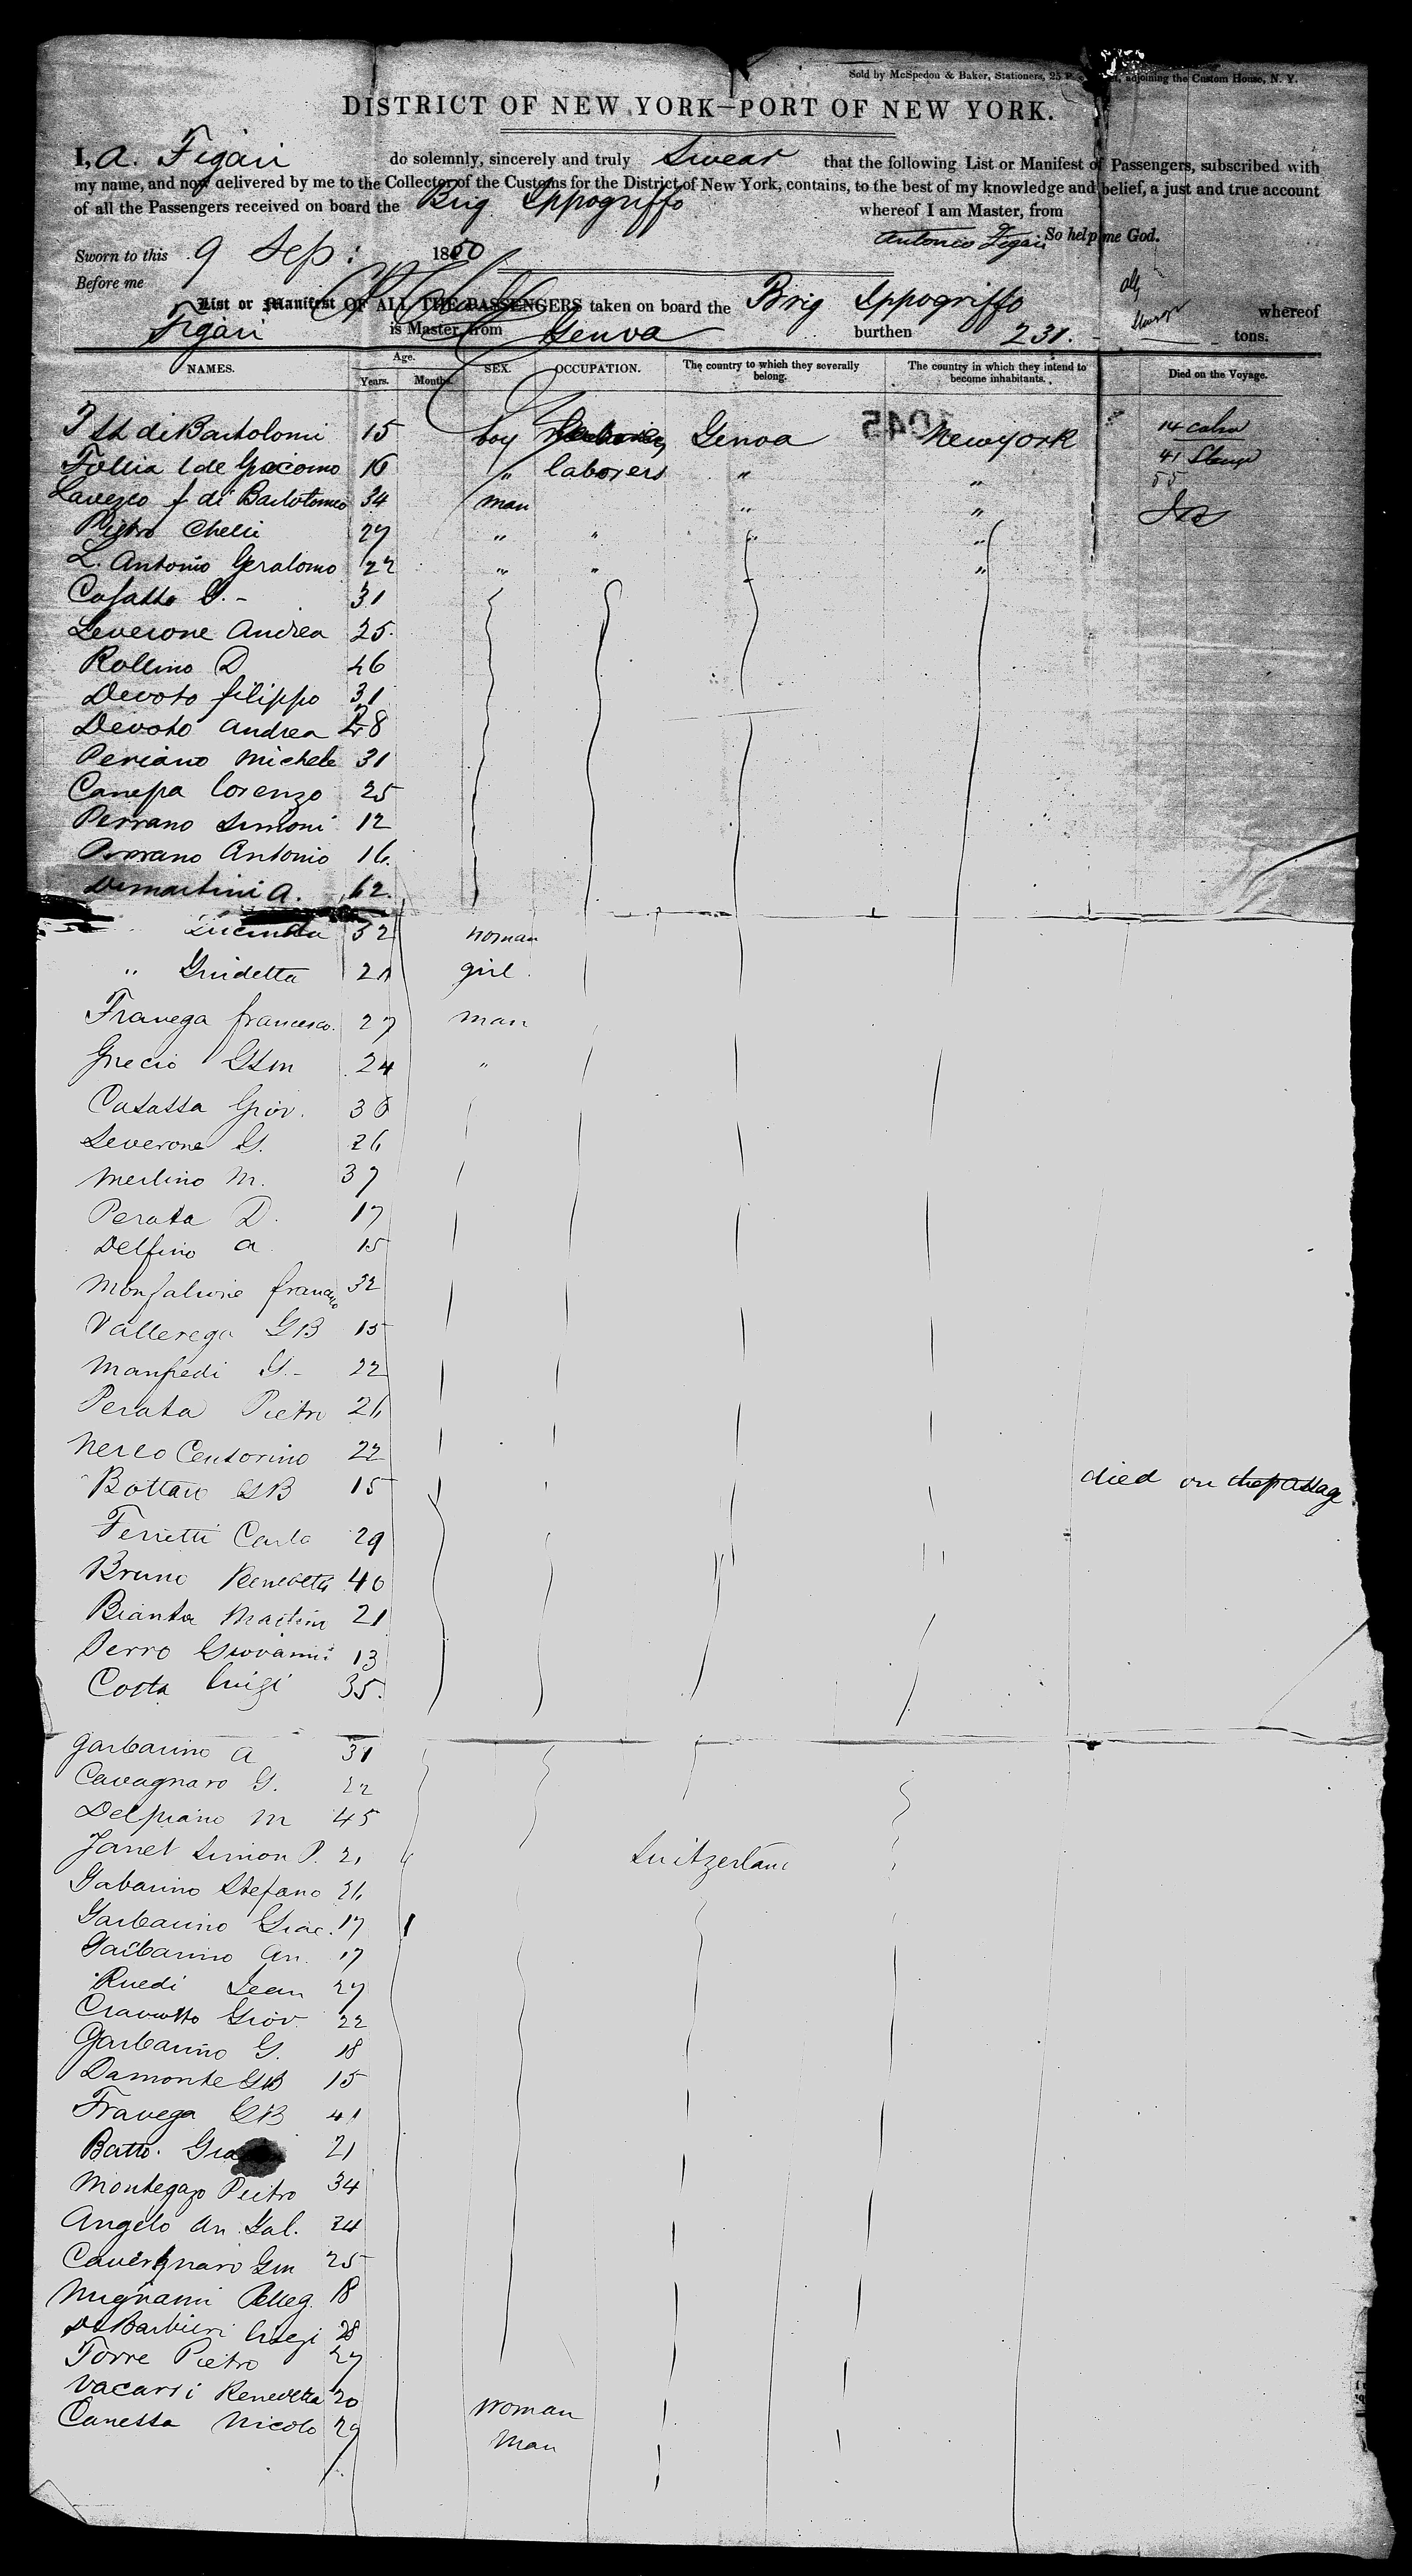 Sold by McSpedon & Baker, Stationers, 25 adjoining the Custom House, N. Y.
DISTRICT OF NEW YORK—PORT OF NEW YORK.
I, A. Figari do solemnly, sincerely and truly Swear that the following List or Manifest of Passengers, subscribed with
my name, and now delivered by me to the Collector of the Customs for the District of New York, contains, to the best of my knowledge and belief, a just and true account
of all the Passengers received on board the Brig Ippogriffo whereof I am Master, from
Antonio Figari So help me God.
Sworn to this 9 Sep: 1850
Before me
List or Manifest OF ALL THE PASSENGERS taken on board the Brig Ippogriffo whereof
Figari is Master, from Genoa burthen 231. tons.
NAMES. Age. Years. Months. SEX. OCCUPATION. The country to which they severally belong. The country in which they intend to become inhabitants. Died on the Voyage.
di Bartolomi 15 boy Genoa 1045 New york 14
de Giacomo 16 " laborers " " 41
Lavezzo f di Bartolomeo 34 man " " 55
Pietro Chelli 27 " " " "
L. Antonio Geralomo 22 " " "
Casatto G. - 31
Leverone Andrea 25
Rollino D 46
Devoto filippo 31
Devoto Andrea 28
Periano Michele 31
Canepa lorenzo 25
Perrano Simoni 12
Antonio 16
Demartini A. 62
Lucinda 32 woman
" Guidetta 21 girl
Fravega francesco. 27 man
Grecio 24 "
Casassa Giov. 36
Leverone G. 26
Merlino M. 37
Perata D. 17
Delfino a 15
32
Vallerega GB 15
Manfredi G. - 22
Perata Pietro 26
Nerco Centorino 22
Bottaro GB 15 died on the passage
Ferretti Carlo 29
Bruno Benedetta 40
Bianta Martin 21
Perro Giovanni 13
Costa luigi 35.
Garbarino A 31
Cavagnaro G. 22
Delpiano M 45
Janet Simon P. 21 Switzerland
Gabarino Stefano 26
Garbarino Giac. 17
Garbarino An. 17
Ruedi Jean 27
Cravotto Giov. 22
Garbarino G. 18
Damonte GB 15
Fravega GB 41
Batto. 21
Montegazo Pietro 34
Angelo An. Gal. 24
25
Mignami Pelleg. 18
De Barbieri luigi 28
Torre Pietro 27
Vacarsi Benedetta 20 woman
Canessa Nicolo 29 man